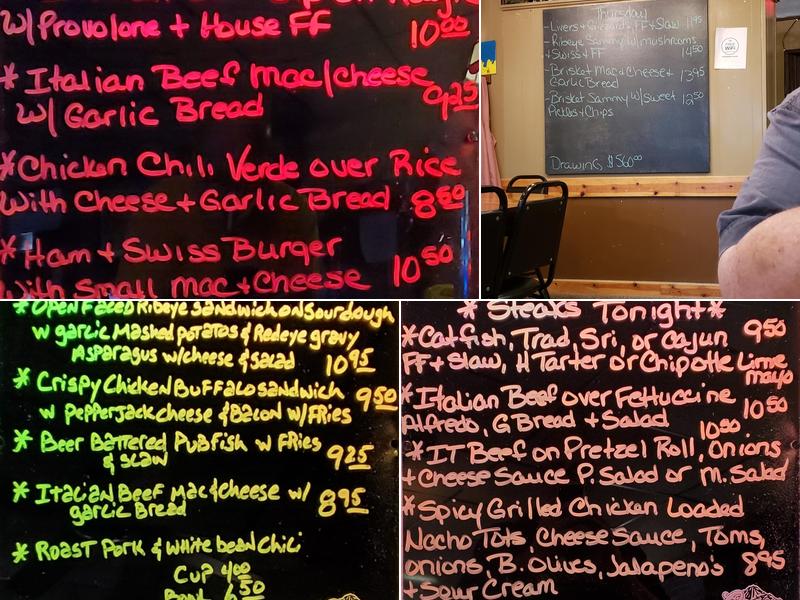 W/Provolone + House FF 10⁰⁰
* Italian Beef Mac/Cheese 9.25
W/ Garlic Bread
*Chicken Chili Verde over Rice
With Cheese + Garlic Bread 8⁵⁰
*Ham + Swiss Burger
With Small Mac + Cheese 10⁵⁰
Thursday
-Livers + Gizzards, FF + Slaw 11⁹⁵
-Ribeye Sammy W/ mushrooms
+ Swiss + FF 14⁵⁰
-Brisket Mac + Cheese + 13⁹⁵
Garlic Bread
-Brisket Sammy W/ Sweet 12⁵⁰
Pickles + Chips
Drawing, $560⁰⁰
WiFi
*Open Faced Ribeye Sandwich on Sourdough
w garlic Mashed potatos & Redeye gravy
Asparagus w/cheese & salad 10⁹⁵
* Crispy Chicken Buffalo sandwich 9⁵⁰
w pepperjack cheese & Bacon w/ FRies
* Beer Battered Pubfish w FRies
& slaw 9²⁵
* Italian Beef Mac & cheese w/ 8⁹⁵
garlic Bread
* Roast Pork & white bean Chili
Cup 4⁰⁰
Bowl 6⁵⁰
* Steaks Tonight *
*Catfish, Trad, Sri, or Cajun 9⁵⁰
FF + Slaw, H Tarter or Chipotle Lime
mayo
*Italian Beef over Fettuccine 10⁵⁰
Alfredo, G Bread + Salad
10⁵⁰
*IT Beef on Pretzel Roll, Onions
+ Cheese Sauce P. Salad or M. Salad
*Spicy Grilled Chicken Loaded
Nacho Tots, Cheese Sauce, Toms,
Onions, B. Olives, Jalapeno's 8⁹⁵
+ Sour Cream